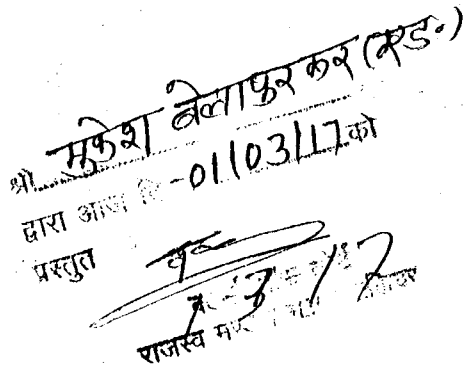 श्री मुकेश बेलापुरकर (एड.)
द्वारा आज दि -01/03/17 को
प्रस्तुत
1-3-17
राजस्व